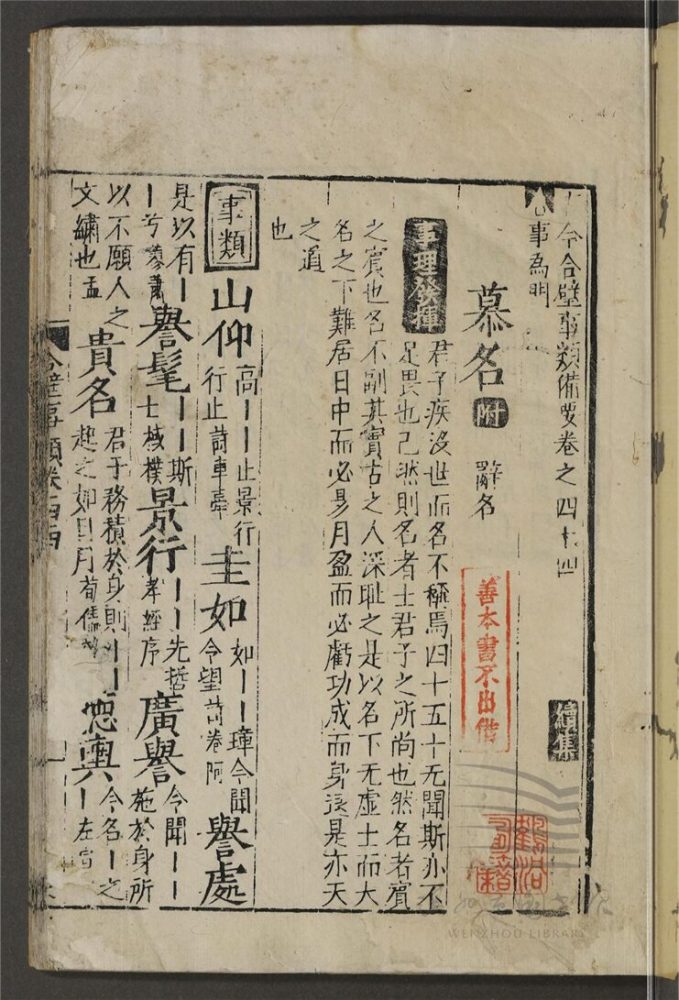 今合璧事類備要卷之四十四 續集
事為門
慕名 附 辭名
事理發揮 君子疾没世而名不稱焉四十五十无聞斯亦不
足畏也已然則名者士君子之所尚也然名者實
之賓也名不副其實古之人深耻之是以名下无虚士而大
名之下難居日中而必昃月盈而必虧功成而身退是亦天
之道
也
事類 山仰 高丨丨止景行行止詩車舝 圭如 如丨丨璋令聞令望詩卷阿 譽處
是以有丨丨兮蓼蕭 譽髦 丨丨斯士棫樸 景行 丨丨先哲孝經序 廣譽 令聞丨丨施於身所
以不願人之文繡也孟 貴名 君子務積於身則丨丨起之如日月荀儒效 德輿 令名丨之丨左
合璧事類卷四十四 一
善本書不出借
WENZHOU LIBRARY